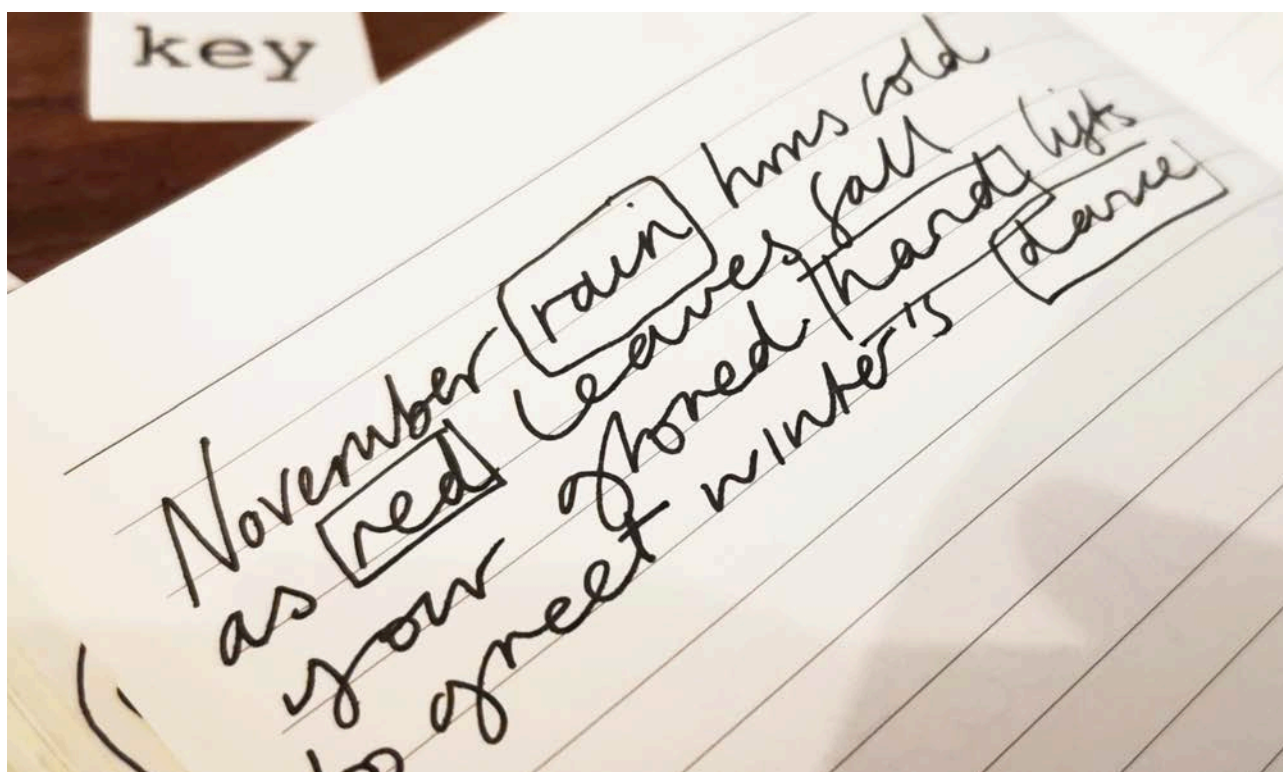 key
November rain turns cold
as red leaves fall
your gloved hand lifts
to greet winter's dance